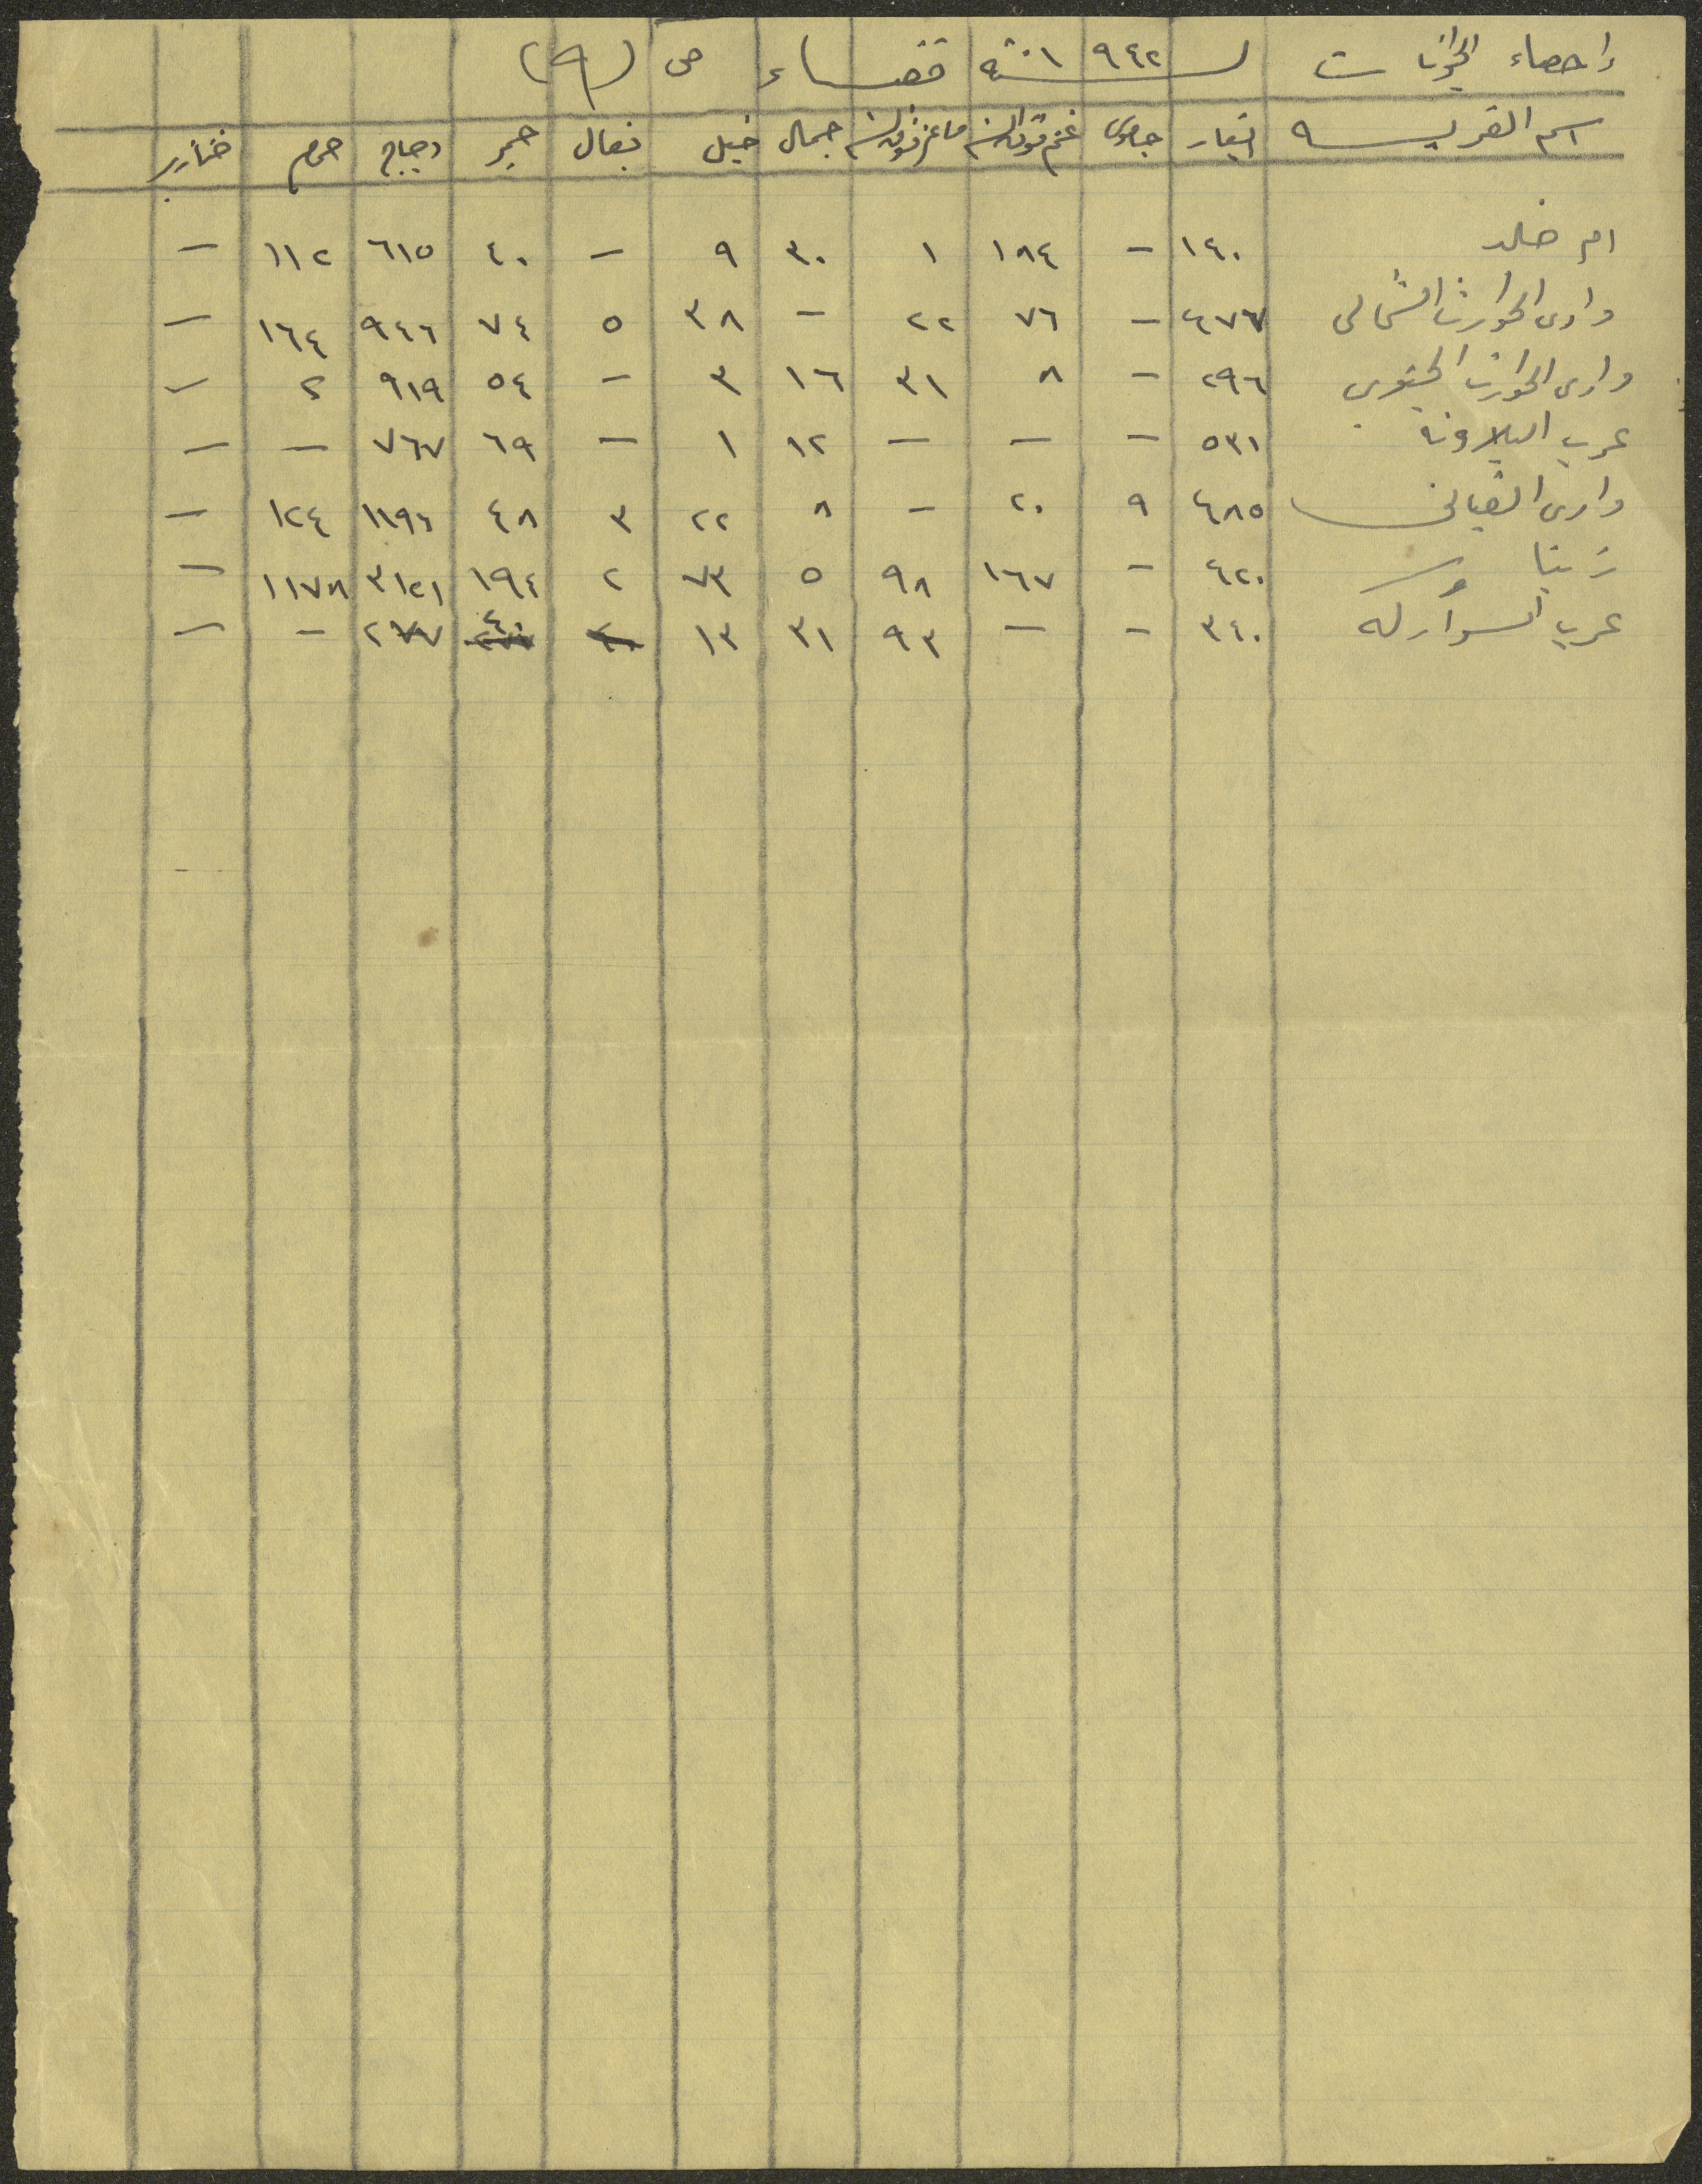 احصاء الحيوانات لسنة ١٩٤٢ قضاء ص (٩)
اسم القرية ابقار جاموس غنم فوق السنه ماعز فوق السنه جمال خيل بغال حمير دجاج حمام خنازير
ام خالد ١٤٠ - ١٨٤ ١ ٣٠ ٩ - ٤٠ ٦١٥ ١١٢ -
وادى الحوارث الشمالى ٤٧٦ - ٧٦ ٢٢ - ٣٨ ٥ ٧٤ ٩٤٦ ١٦٤ -
وادى الحوارث الجنوبي ٢٩٦ - ٨ ٣١ ١٦ ٣ - ٥٤ ٩١٩ ٢ -
عرب البلاونة ٥٣١ - - - ١٢ ١ - ٦٩ ٧٦٧ - -
وادى القبانى ٤٨٥ ٩ ٢٠ - ٨ ٢٢ ٣ ٤٨ ١١٩٦ ١٢٤ -
زيتا ٤٢٠ - ١٦٧ ٩٨ ٥ ٧٣ ٢ ١٩٤ ٣١٢١ ١١٧٨ -
عرب السوأركه ٣٤٠ - - ٩٣ ٣١ ١٣ ٢٧٧ - -